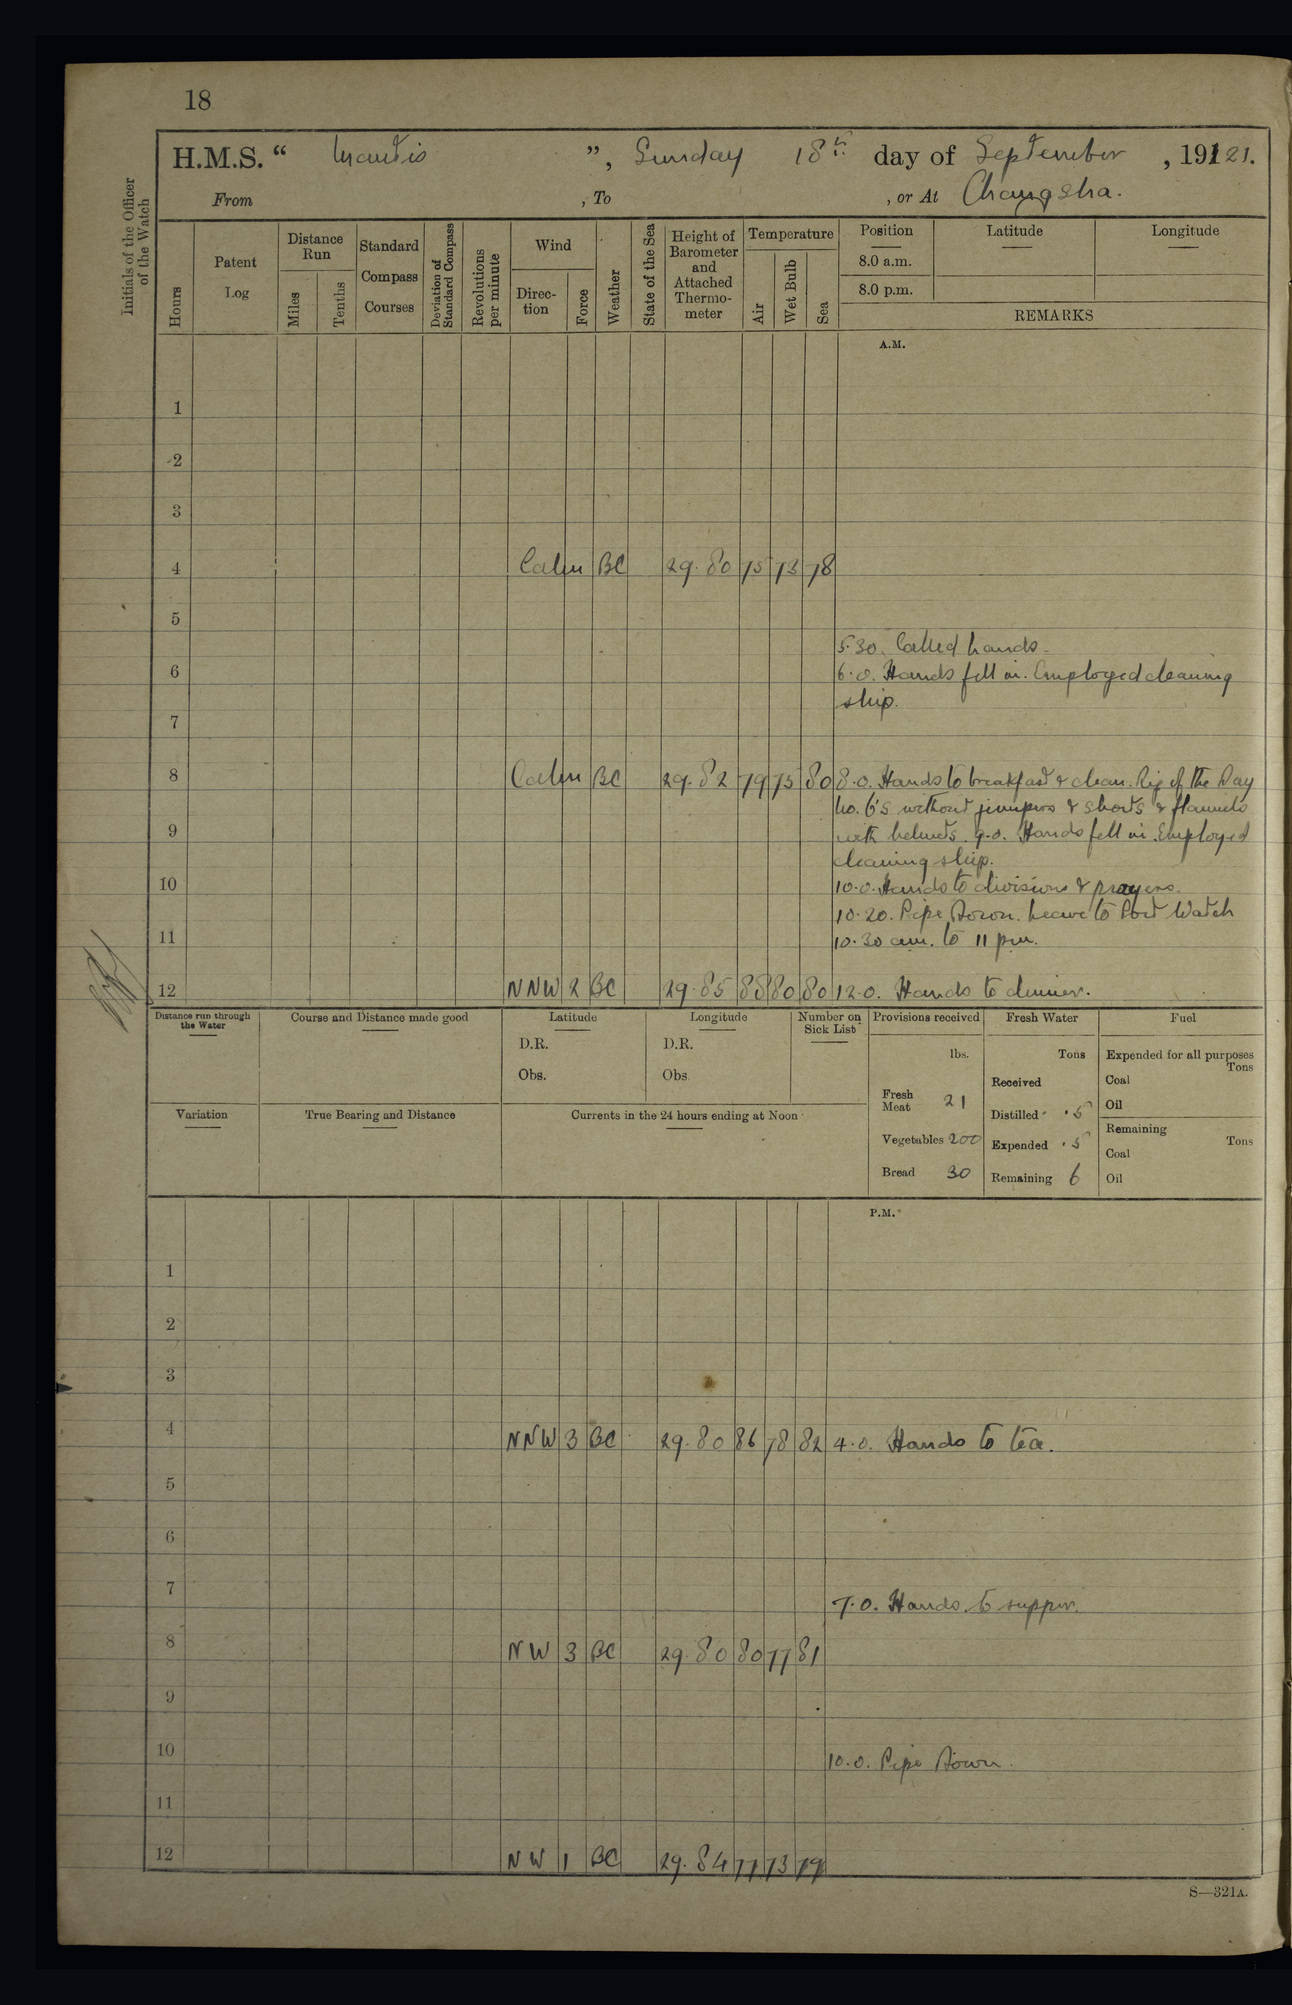 18
H.M.S. “ Mantis ”, Sunday 18th day of September , 19121.
From , To , or At Changsha.
Initials of the Officer of the Watch
Hours
Patent Log
Distance Run
Miles
Tenths
Standard Compass Courses
Deviation of Standard Compass
Revolutions per minute
Wind
Direction
Force
Weather
State of the Sea
Height of Barometer and Attached Thermometer
Temperature
Air
Wet Bulb
Sea
Position Latitude Longitude
8.0 a.m.
8.0 p.m.
REMARKS
A.M.
1
2
3
4 Calm BC 29.80 75 73 78
5
5.30. Called hands.
6 6.0. Hands fell in. Employed cleaning
ship.
7
8 Calm BC 29.82 79 75 80 8.0. Hands to breakfast & clean. Rig of the Day
No. 6's without jumpers & shorts & flannels
9 with helmets. 9.0. Hands fell in. Employed
cleaning ship.
10 10.0. Hands to divisions & prayers.
10.20. Pipe Down. Leave to Port Watch
11 10.30 am. to 11 pm.
12 NNW 2 BC 29.85 88 80 80 12.0. Hands to dinner.
Distance run through the Water
Course and Distance made good
Latitude
D.R.
Obs.
Longitude
D.R.
Obs.
Number on Sick List
Provisions received
lbs.
Fresh Meat 21
Vegetables 200
Bread 30
Fresh Water
Tons
Received
Distilled .5
Expended .5
Remaining 6
Fuel
Expended for all purposes
Tons
Coal
Oil
Remaining
Tons
Coal
Oil
Variation
True Bearing and Distance
Currents in the 24 hours ending at Noon
P.M.
1
2
3
4 NNW 3 BC 29.80 86 78 82 4.0. Hands to tea.
5
6
7 7.0. Hands to supper.
8 NW 3 BC 29.80 80 77 81
9
10 10.0. Pipe Down.
11
12 NW 1 BC 29.84 77 73 79
S—321A.